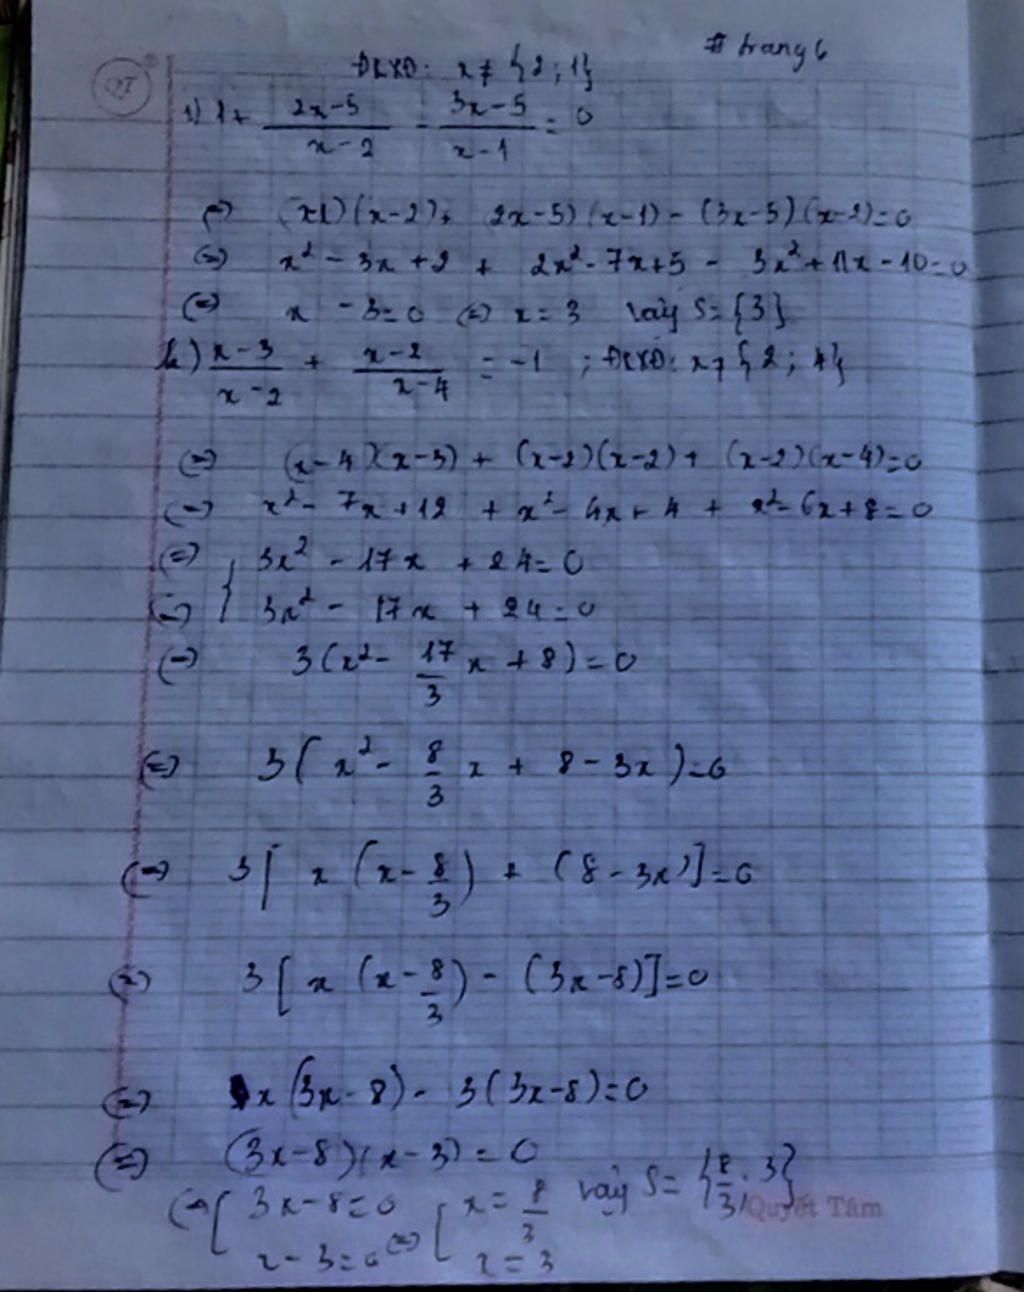 # trang 6
ĐKXĐ: x ≠ {2; 1}
1 + (2x-5)/(x-2) - (3x-5)/(x-1) = 0
(=) (x-1)(x-2) + (2x-5)(x-1) - (3x-5)(x-2) = 0
(=) x² - 3x + 2 + 2x² - 7x + 5 - 3x² + 11x - 10 = 0
(=) x - 3 = 0 (=) x = 3 Vậy S = {3}
(x-3)/(x-2) + (x-2)/(x-4) = -1 ; ĐKXĐ: x ≠ {2; 4}
(=) (x-4)(x-3) + (x-2)(x-2) + (x-2)(x-4) = 0
(=) x² - 7x + 12 + x² - 4x + 4 + x² - 6x + 8 = 0
(=) { 3x² - 17x + 24 = 0
(=) 3x² - 17x + 24 = 0
(=) 3(x² - 17/3 x + 8) = 0
(=) 3(x² - 8/3 x + 8 - 3x) = 0
(=) 3[x(x - 8/3) + (8 - 3x)] = 0
(=) 3[x(x - 8/3) - (3x-8)] = 0
(=) x(3x-8) - 3(3x-8) = 0
(=) (3x-8)(x-3) = 0
(=) [ 3x-8=0 (=) [ x = 8/3 Vậy S = {8/3; 3}
x-3=0 x = 3
Quyết Tâm